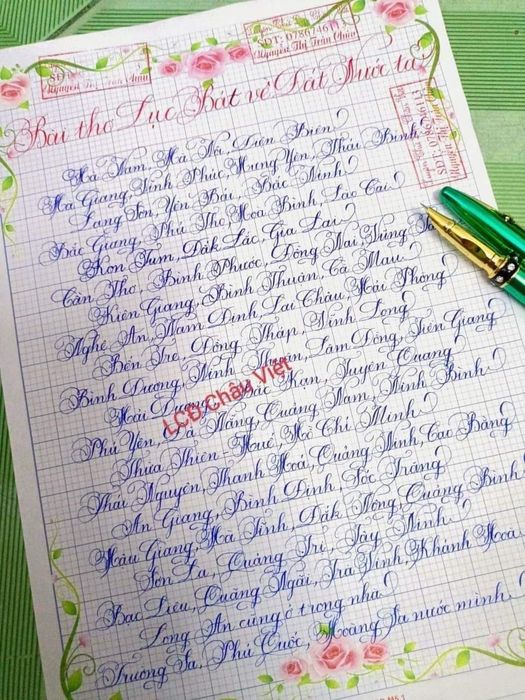 SĐT: 0786746113
Nguyễn Thị Trân Châu
Bài thơ Lục Bát về Đất Nước ta
Hà Nam, Hà Nội, Điện Biên
Hà Giang, Vĩnh Phúc, Hưng Yên, Thái Bình
Lạng Sơn, Yên Bái, Bắc Ninh
Bắc Giang, Phú Thọ, Hòa Bình, Lào Cai
Kon Tum, Đắk Lắk, Gia Lai
Cần Thơ, Bình Phước, Đồng Nai, Vũng
Kiên Giang, Bình Thuận, Cà Mau
Nghệ An, Nam Định, Lai Châu, Hải Phòng
Bến Tre, Đồng Tháp, Vĩnh Long
Bình Dương, Ninh Thuận, Lâm Đồng, Tiền Giang
Hải Dương, Bắc Kạn, Tuyên Quang
Phú Yên, Đà Nẵng, Quảng Nam, Ninh Bình
Thừa Thiên-Huế, Hồ Chí Minh
Thái Nguyên, Thanh Hoá, Quảng Ninh, Cao Bằng
An Giang, Bình Định, Sóc Trăng
Hậu Giang, Hà Tĩnh, Đắk Nông, Quảng Bình
Sơn La, Quảng Trị, Tây Ninh
Bạc Liêu, Quảng Ngãi, Trà Vinh, Khánh Hoà
Long An cùng ở trong nhà
Trường Sa, Phú Quốc, Hoàng Sa nước mình
LCĐ Châu Việt